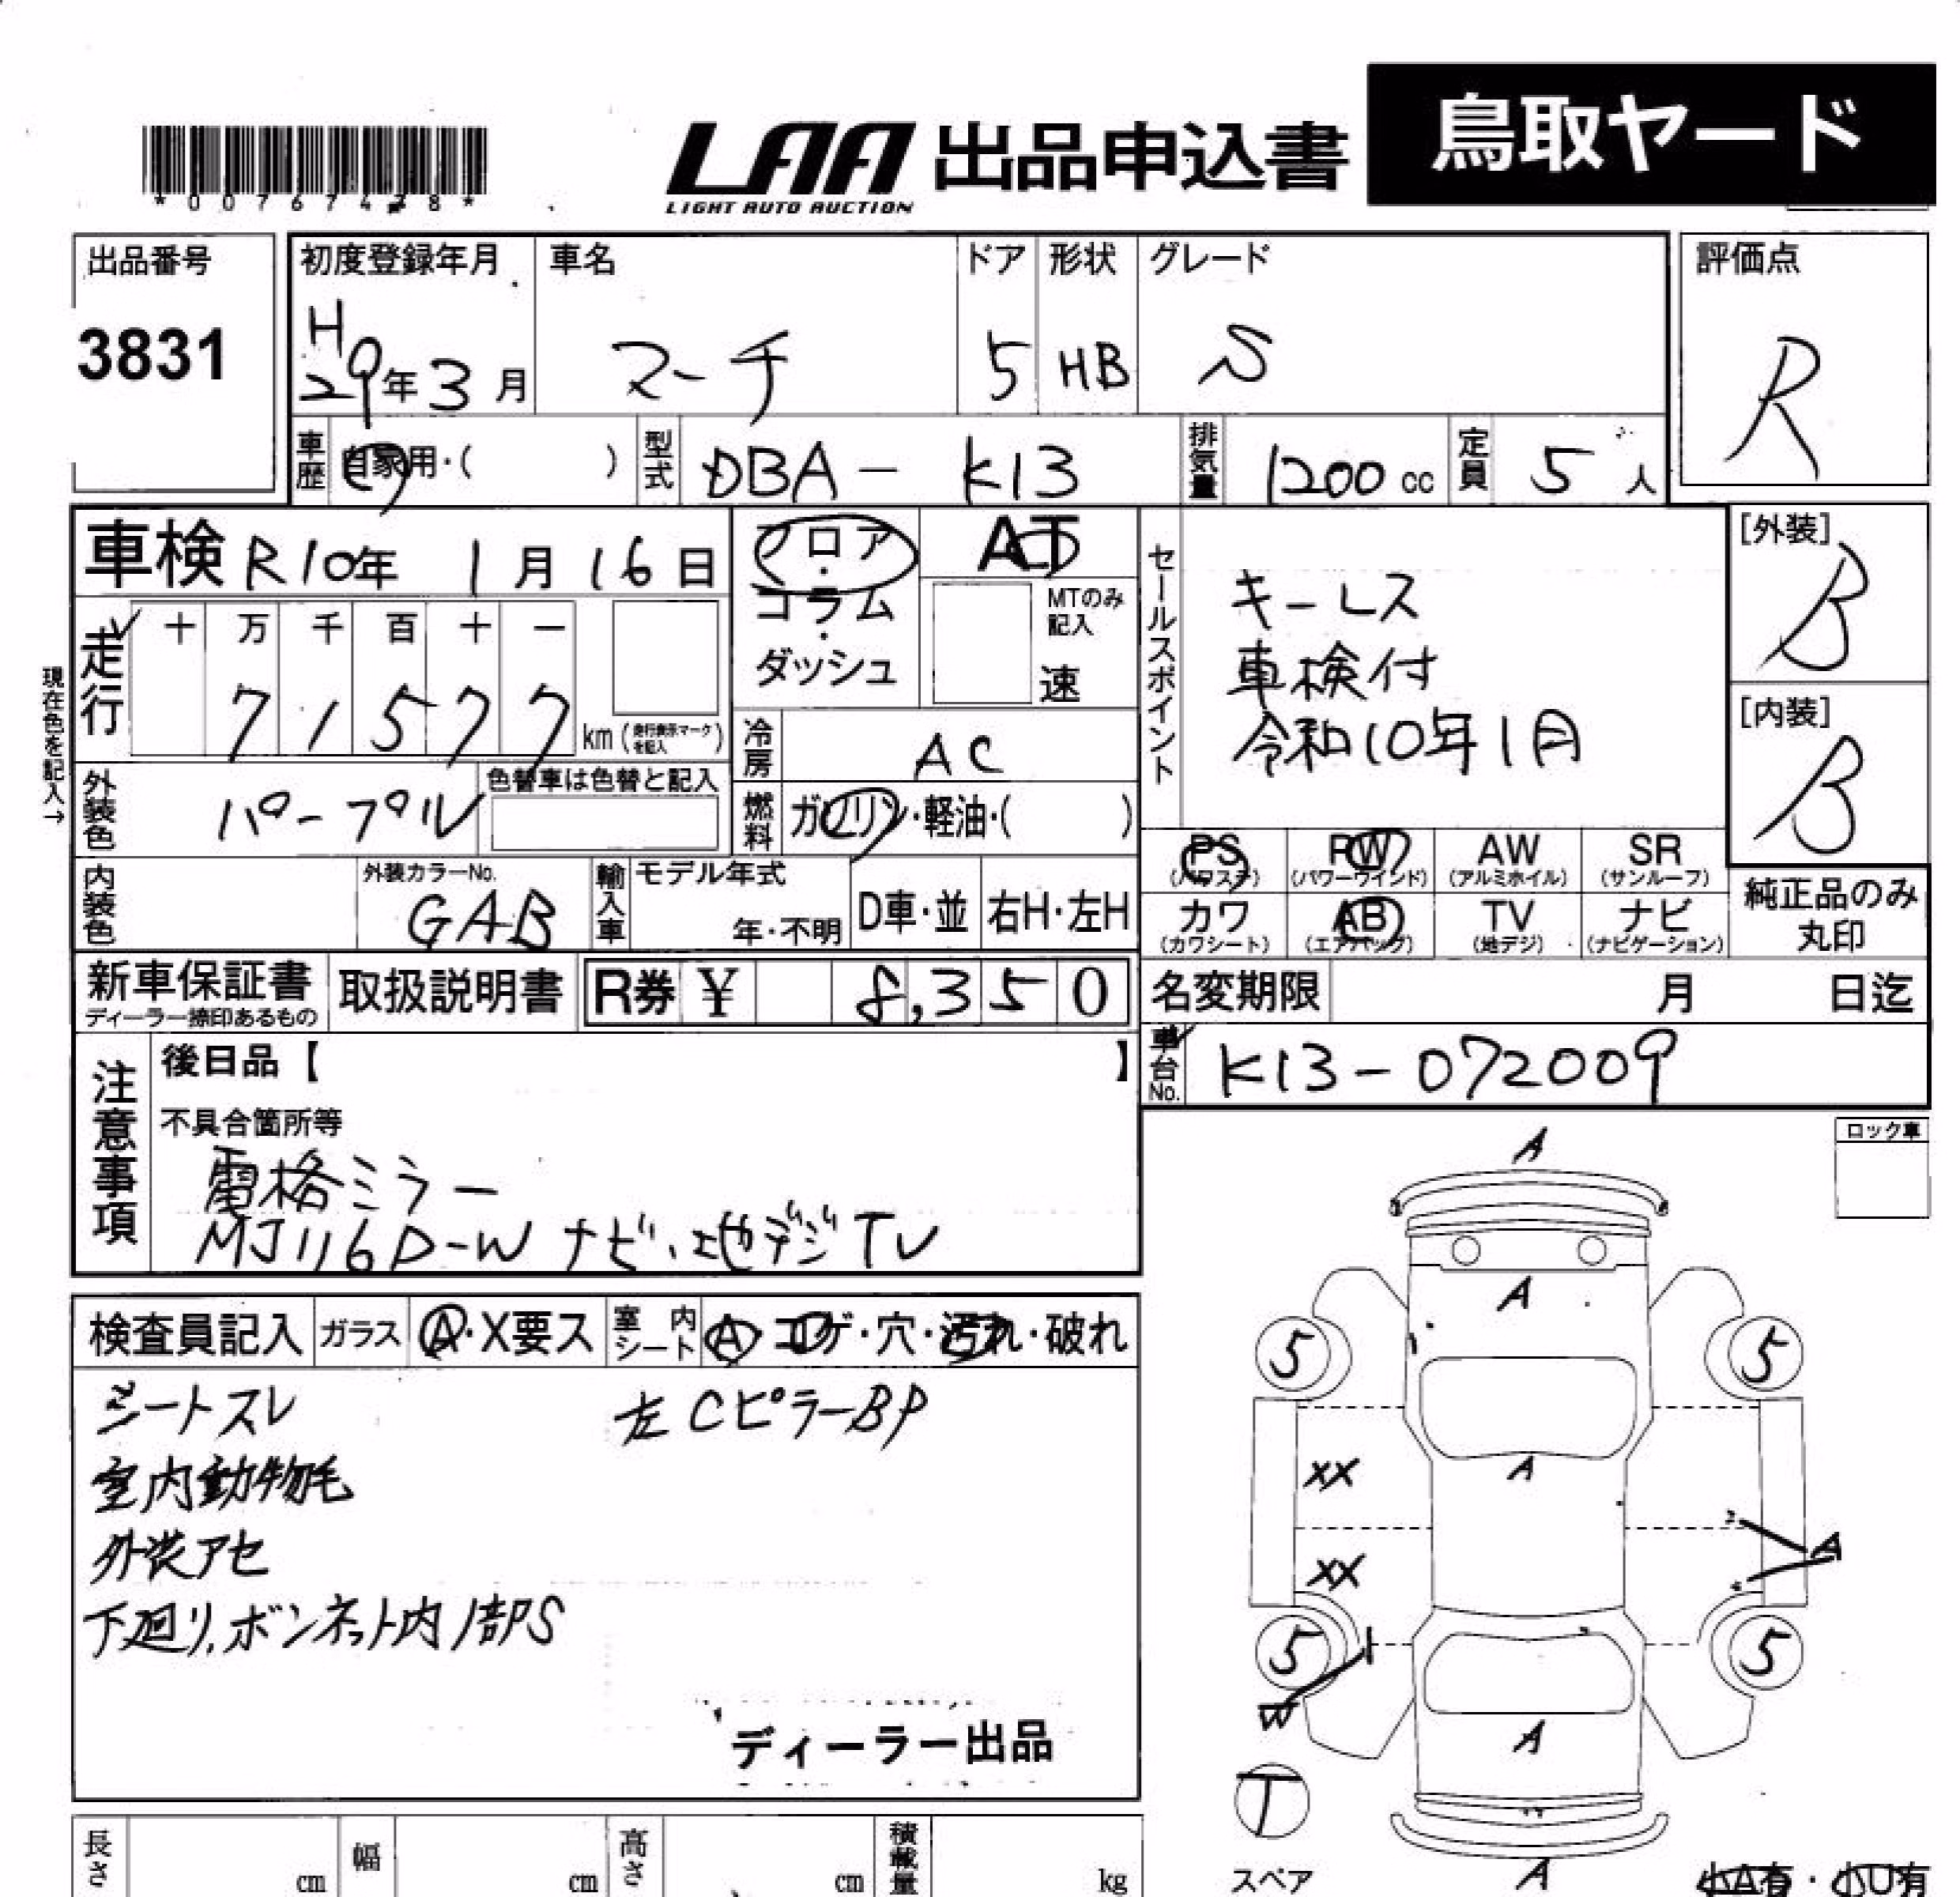 *0076747８*
LAA 出品申込書 鳥取ヤード
LIGHT AUTO AUCTION
出品番号 初度登録年月 車名 ドア 形状 グレード 評価点
3831 H29年3月 マーチ 5 HB S R
車歴 自家用・( ) 型式 DBA-K13 排気量 1200cc 定員 5人
車検 R10年1月16日 フロア・コラム・ダッシュ AT
MTのみ記入 速
セールスポイント
キーレス
車検付
令和10年1月
[外装] B
[内装] B
現在色を記入→
走行 十 万 千 百 十 一
7 1 5 7 7 km (走行表示マークを記入)
冷房 AC
外装色 パープル 色替車は色替と記入
燃料 ガソリン・軽油・( )
PS (パワステ) PW (パワーウインド) AW (アルミホイル) SR (サンルーフ)
カワ (カワシート) AB (エアバッグ) TV (地デジ) ナビ (ナビゲーション)
純正品のみ丸印
内装色 外装カラーNo. GAB 輸入車 モデル年式 年・不明 D車・並 右H・左H
新車保証書 ディーラー捺印あるもの 取扱説明書 R券 ¥ 8,350
名変期限 月 日迄
車台No. K13-072009
注意事項
後日品【 】
不具合箇所等
電格ミラー
MJ116D-W ナビ、地デジTV
ロック車
検査員記入 ガラス A・X要ス 室内シート A・コゲ・穴・汚れ・破れ
シートスレ 左CピラーBP
室内動物毛
外装アセ
下廻り、ボンネット内1部S
ディーラー出品
A
A
5 5
A
XX
A
XX
5 5
W
A
T
スペア
A
小A有・小U有
長さ cm 幅 cm 高さ cm 積載量 kg